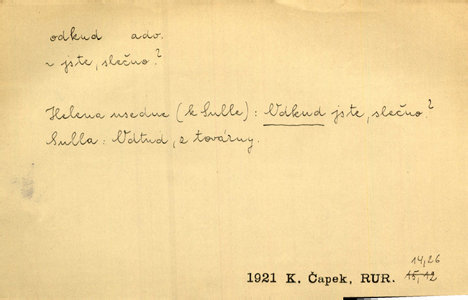 odkud adv.
~ jste, slečno?
Helena usedne (k Sulle): Odkud jste, slečno?
Sulla: Odtud, z továrny.
14,26
1921 K. Čapek, RUR. 15,12